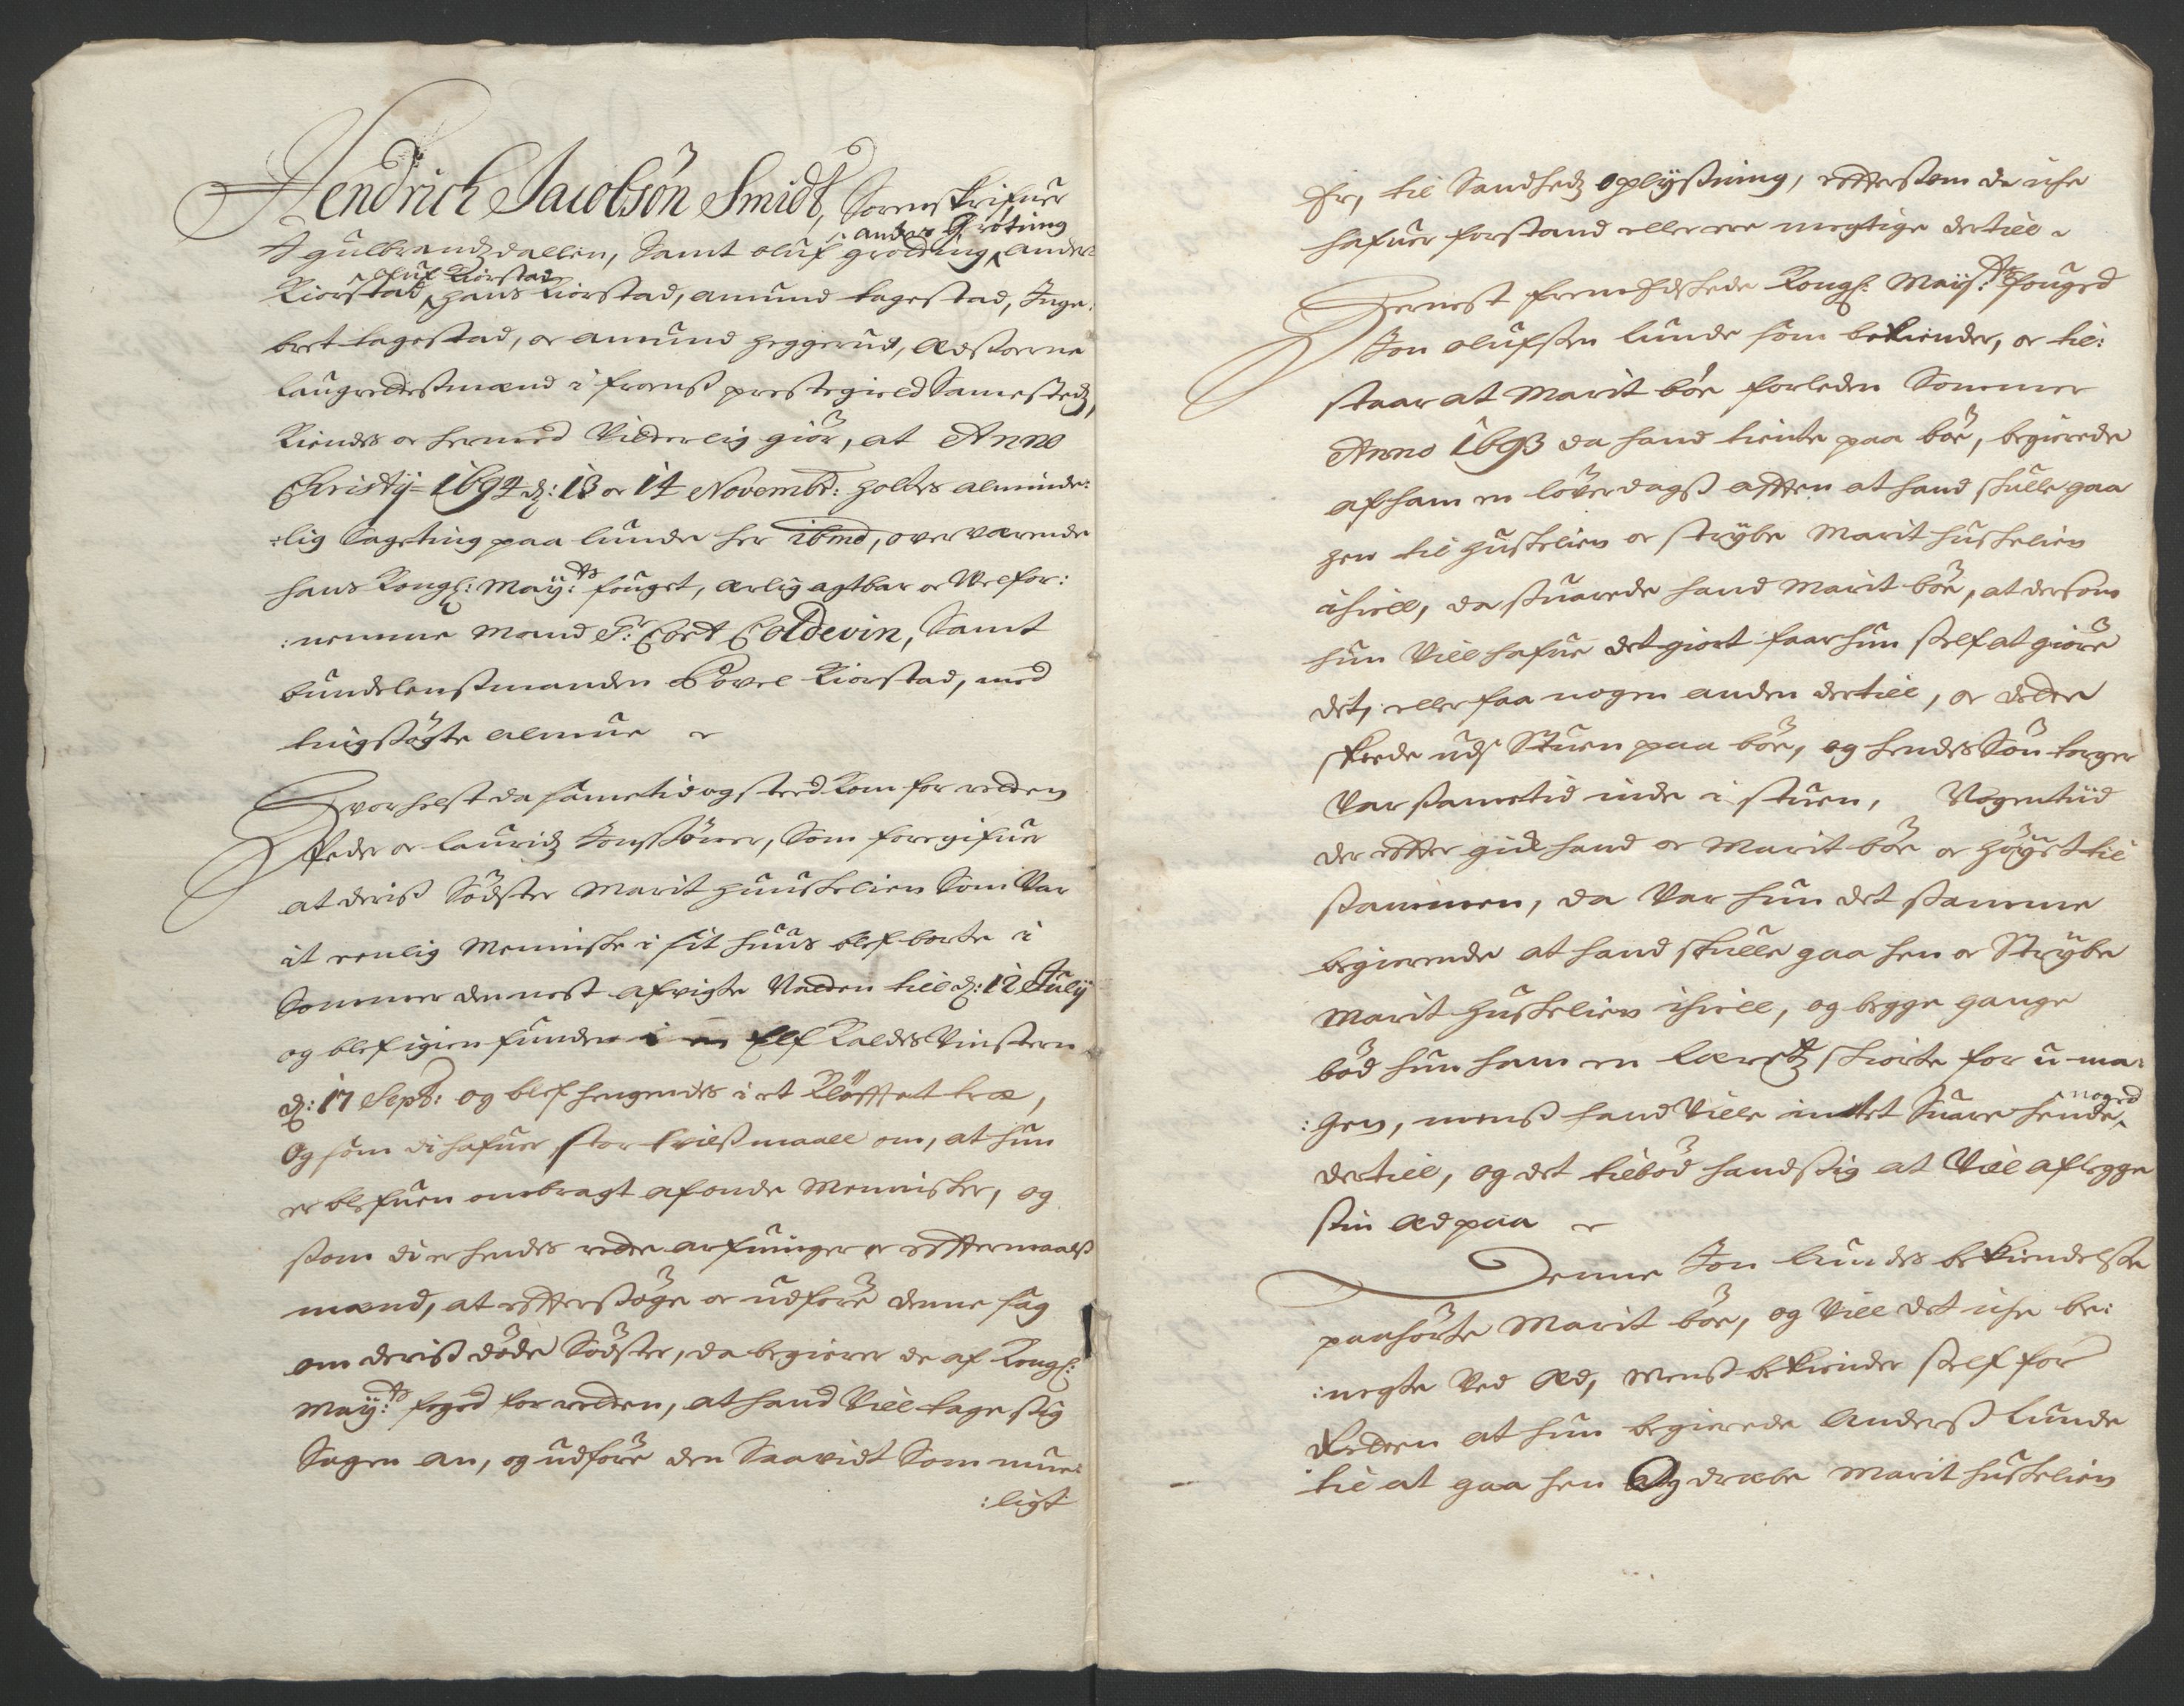 Hendrich Jacobsøn Smidt, Sorenskrifuer
I gulbrandzdallen, Samt oluf grötting, ander Grötting, ander
Kiorstad, oluf Kiorstad, hans Kiorstad, amund tagestad, Inge:
bret tagestad, oc amund heggerud, Edsoerne
laugrettesmænd i froens prestegield Samestedz,
Kiendes oc hermed Vitterlig giör, at Anno
Christÿ 1694 d: 13 oc 14 Novembr: holtes alminde:
:lig Sageting paa lunde her ibmd, ofverværende
hans Kongl: Maÿ:ts fouget, ærlig agtbar oc Velfor:
:nemme Mand Sr: Cort Coldevin, Samt
bundelensmanden Povel Kiorstad, med
tingsögte almue
Hvorhelst da sametid og sted Kom for retten
Peder oc lauridz Jonssöner, Som foregifuer
at deris Södster Marit huuskelien Som Var
it eenlig Menniske i sit huus blef borte i
Sommer nest afvigte Natten till d: 12 Julÿ
og blef igien funden i en Elf Kaldes Vinstern
d: 17 Septb: og blef hengendes i et Klöfftet træ,
Og som di hafuer stor tvilsmaall om, at hun
er blefuen ombragt af onde Mennisker, og
som di er hendes rette arfuinger oc efftermaals
mænd, at efftersöge oc udföre denne sag
om deris döde Södster, da begierer de af Kongl:
Maÿ:ts foged for retten, at hand Vill tage sig
Sagen an, og udföre den Saavidt Som mue:
:ligt
er, til Sandhedz oplÿsning, effttersom de iche
hafuer forstand eller ere megtige dertill
Dernest fremEdskede Kongl: Maÿ:ts fouged
Jon olufsen lunde som bekiender, oc til:
staar at Marit böe forleden Sommer
Anno 1693 da hand tiente paa böe, begierede
af ham en löverdags afften at hand skulle gaa
hen til huskelien oc strÿbe Marit huskelien
ihiell, da suarede hand Marit böe, at dersom
hun Vill hafue det giort faar hun self at giöre
det, eller faa nogen anden dertill, oc dette
skeede udj Stuen paa böe, og hendes Sön torger
Var sametid inde i stuen, Nogentiid
der effter gik hand oc Marit böe oc höyet til
sammen, da Var hun det samme
begierende at hand skulle gaa hen oc Strÿbe
Marit huskelien ihiell, og begge gange
böd hun ham en lærretz skiorte for u-ma:
:gen, mens hand Ville intet Suare hende noged
dertill, og det tilböd hand sig at Vill aflegge
sin æd paa
Denne Jon lundes bekiendelse
paahörte Marit böe, og Vill det iche be:
:negte Ved Æd, Mens bekiender self for
Retten at hun begierede Anders lunde
til at gaa hen Og dræbe Marit huskelien